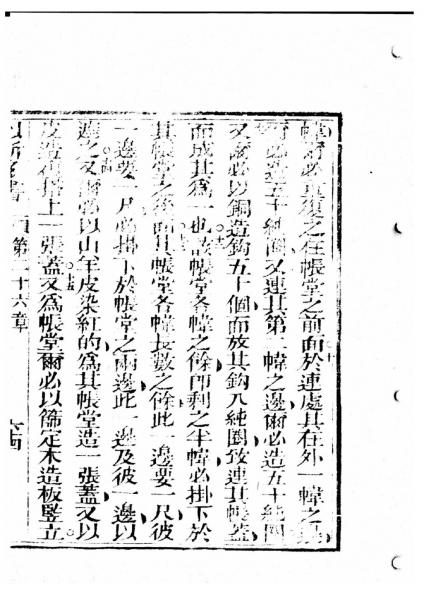 幃爾必重復之在帳堂之前面於連處其在外一幃之邊
爾必造五十純圈又連其第二幃之邊爾必造五十純圈
又爾必以銅造鈎五十個而放其鈎入純圈致連其帳蓋
而成其為一也該帳堂各幃之餘即剩之半幃必掛下於
其帳堂之後面其帳堂各幃長數之餘此一邊要一尺彼
一邊要一尺必掛下於帳堂之兩邊此一邊及彼一邊以
遮之又爾當以山羊皮染紅的為其帳堂造一張蓋又以
皮造何搭上一張蓋又為帳堂爾必以篩定木造板竪立
書 一項第二十六章